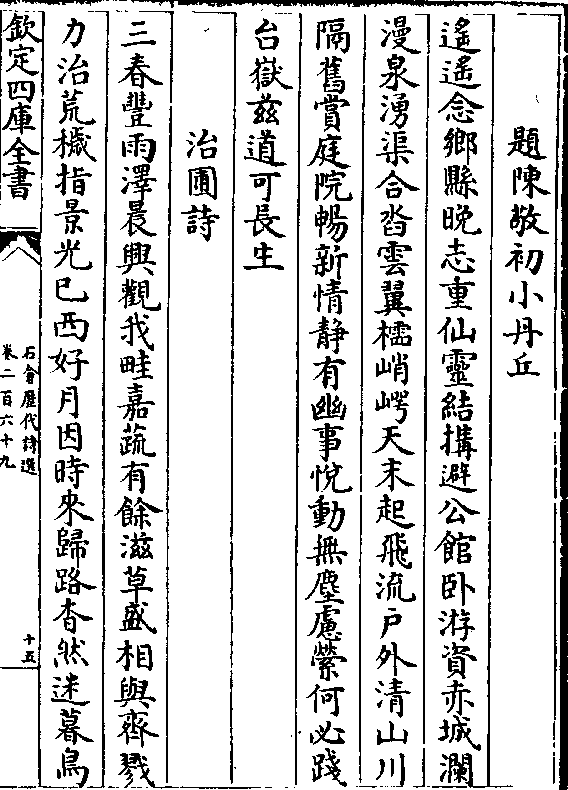 題陳敬初小丹丘
遙遙念鄉縣晩志重仙靈結搆避公館卧游資赤城瀾
漫泉湧渠合沓雲翼櫺峭崿天末起飛流户外清山川
隔舊賞庭院暢新情静有幽事悅動無塵慮縈何必踐
台嶽兹道可長生
治圃詩
三春豐雨澤晨興觀我畦嘉蔬有餘滋草盛相與齊戮
力治荒穢指景光已西好月因時來歸路杳然迷暮鳥
欽定四庫全書
石倉歷代詩選
卷二百六十九
十五